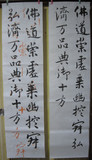 佛道崇虛乘幽控寂弘
濟万品典御十方
佛道崇虛乘幽控寂弘
濟万品典御十方